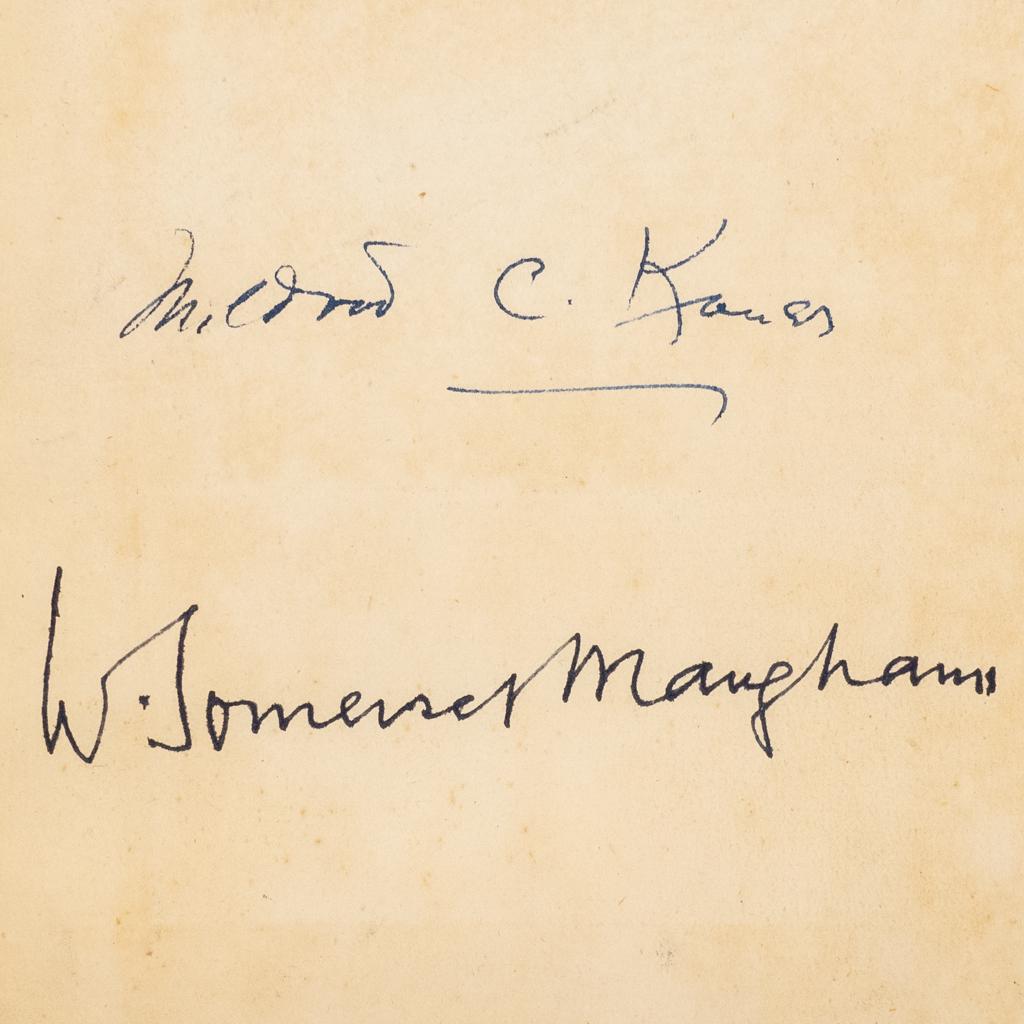 Mildred C.
W. Somerset Maugham